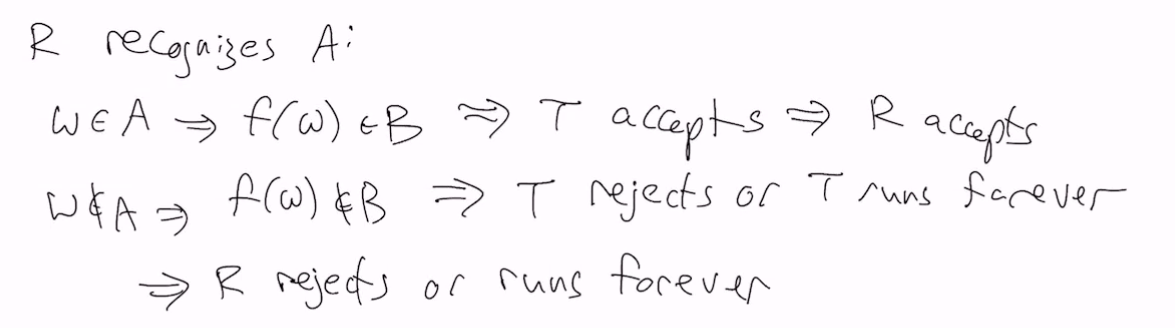 R recognizes A:
w ∈ A ⇒ f(w) ∈ B ⇒ T accepts ⇒ R accepts
w ∉ A ⇒ f(w) ∉ B ⇒ T rejects or T runs forever
⇒ R rejects or runs forever